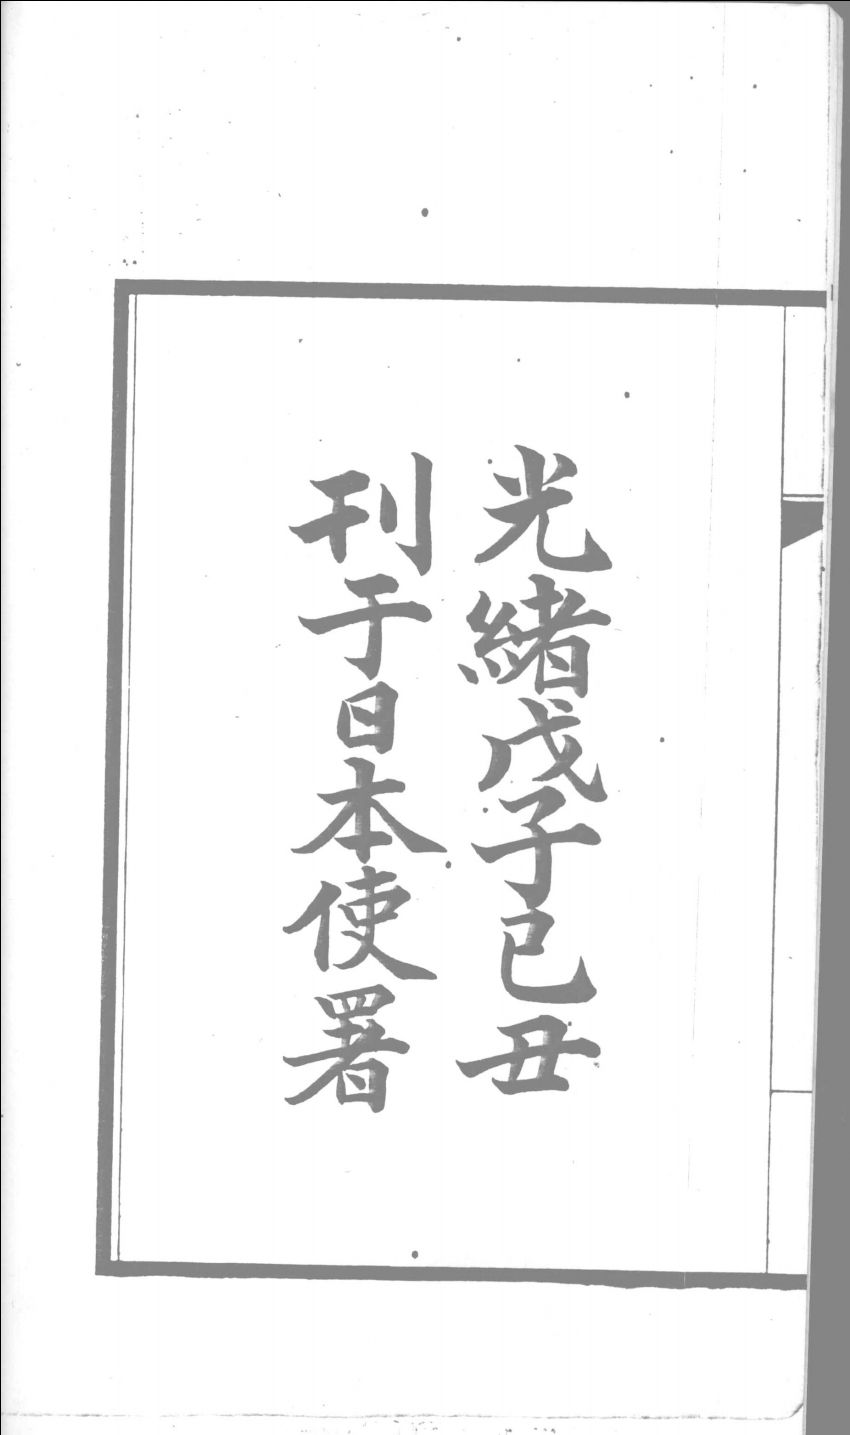 光緒戊子己丑
刊于日本使署